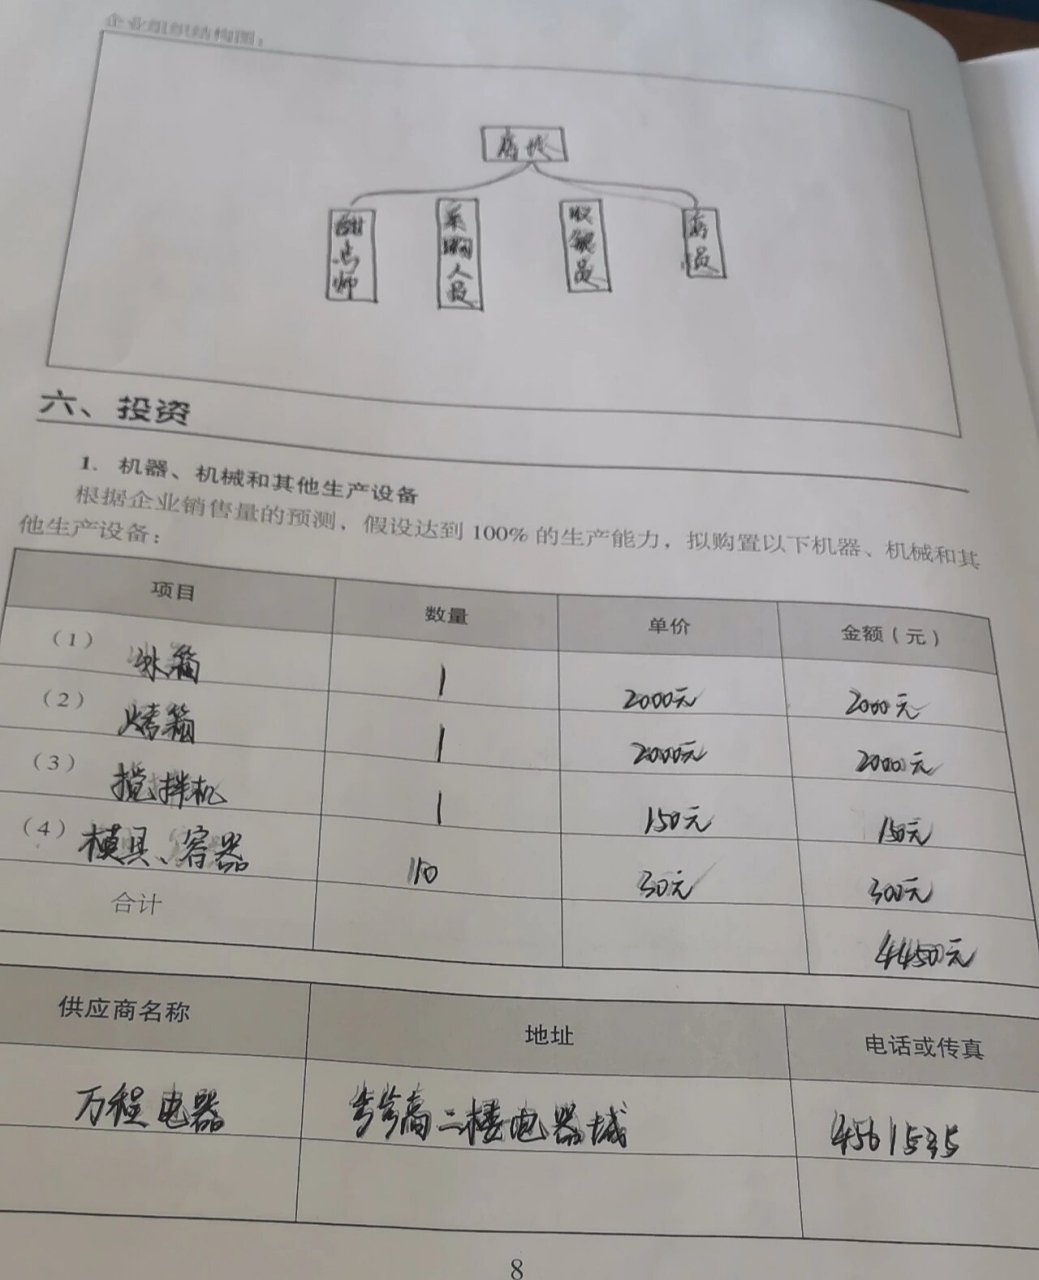 企业组织结构图：
店长
甜点师 采购人员 收银员 店员
六、投资
1. 机器、机械和其他生产设备
根据企业销售量的预测，假设达到 100% 的生产能力，拟购置以下机器、机械和其
他生产设备：
项目 数量 单价 金额（元）
（1） 冰箱 1 2000元 2000元
（2） 烤箱 1 2000元 2000元
（3） 搅拌机 1 150元 150元
（4） 模具、容器 10 30元 300元
合计 4450元
供应商名称 地址 电话或传真
万程电器 步步高二楼电器城 4561535
8